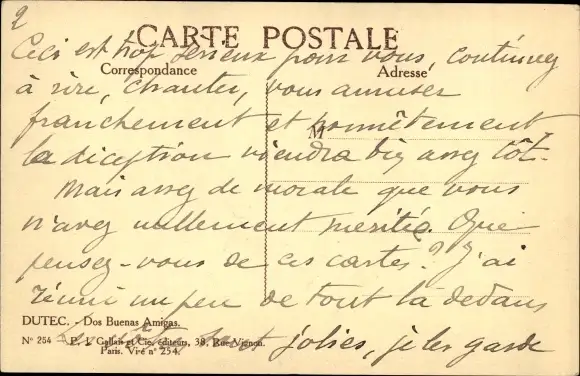 2
CARTE POSTALE
Correspondance
Adresse
Ceci est trop serieux pour vous, continuez
à rire, chanter, vous amuser
franchement et honnêtement
M
la déception viendra bien assez tôt.
Mais assez de morale que vous
n'avez nullement meritée. Que
pensez-vous de ces cartes? J'ai
réuni un peu de tout là dedans
DUTEC. - Dos Buenas Amigas.
Nº 254 P. J. Gallais et Cie, éditeurs, 38, Rue Vignon.
Paris. Visé nº 254.
sont jolies, je les garde